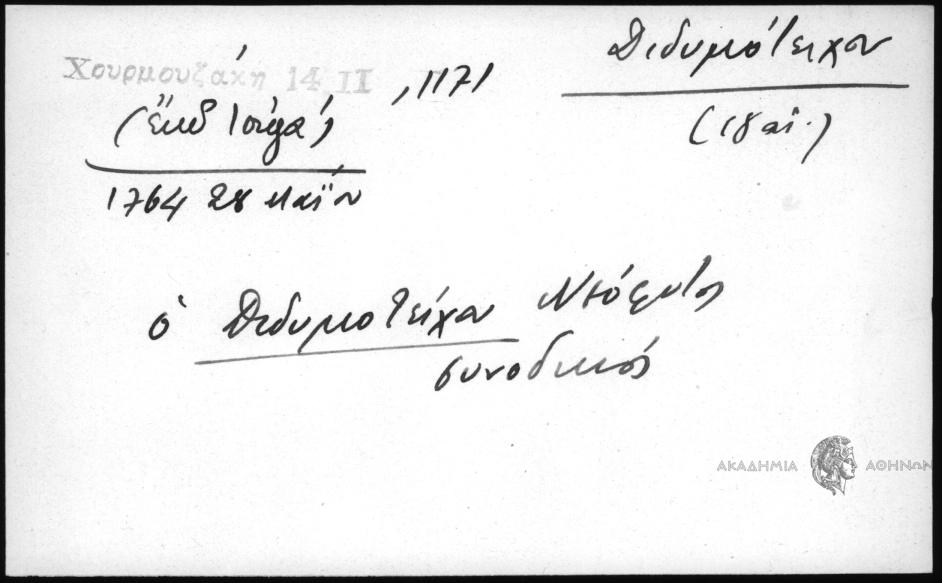 Χουρμουζάκη 14 II , 1171
Διδυμότειχον
(18 αἰ.)
1764 28 Μαΐου
ὁ Διδυμοτείχου Νεόφυτος
συνοδικός
ΑΚΑΔΗΜΙΑ ΑΘΗΝΩΝ